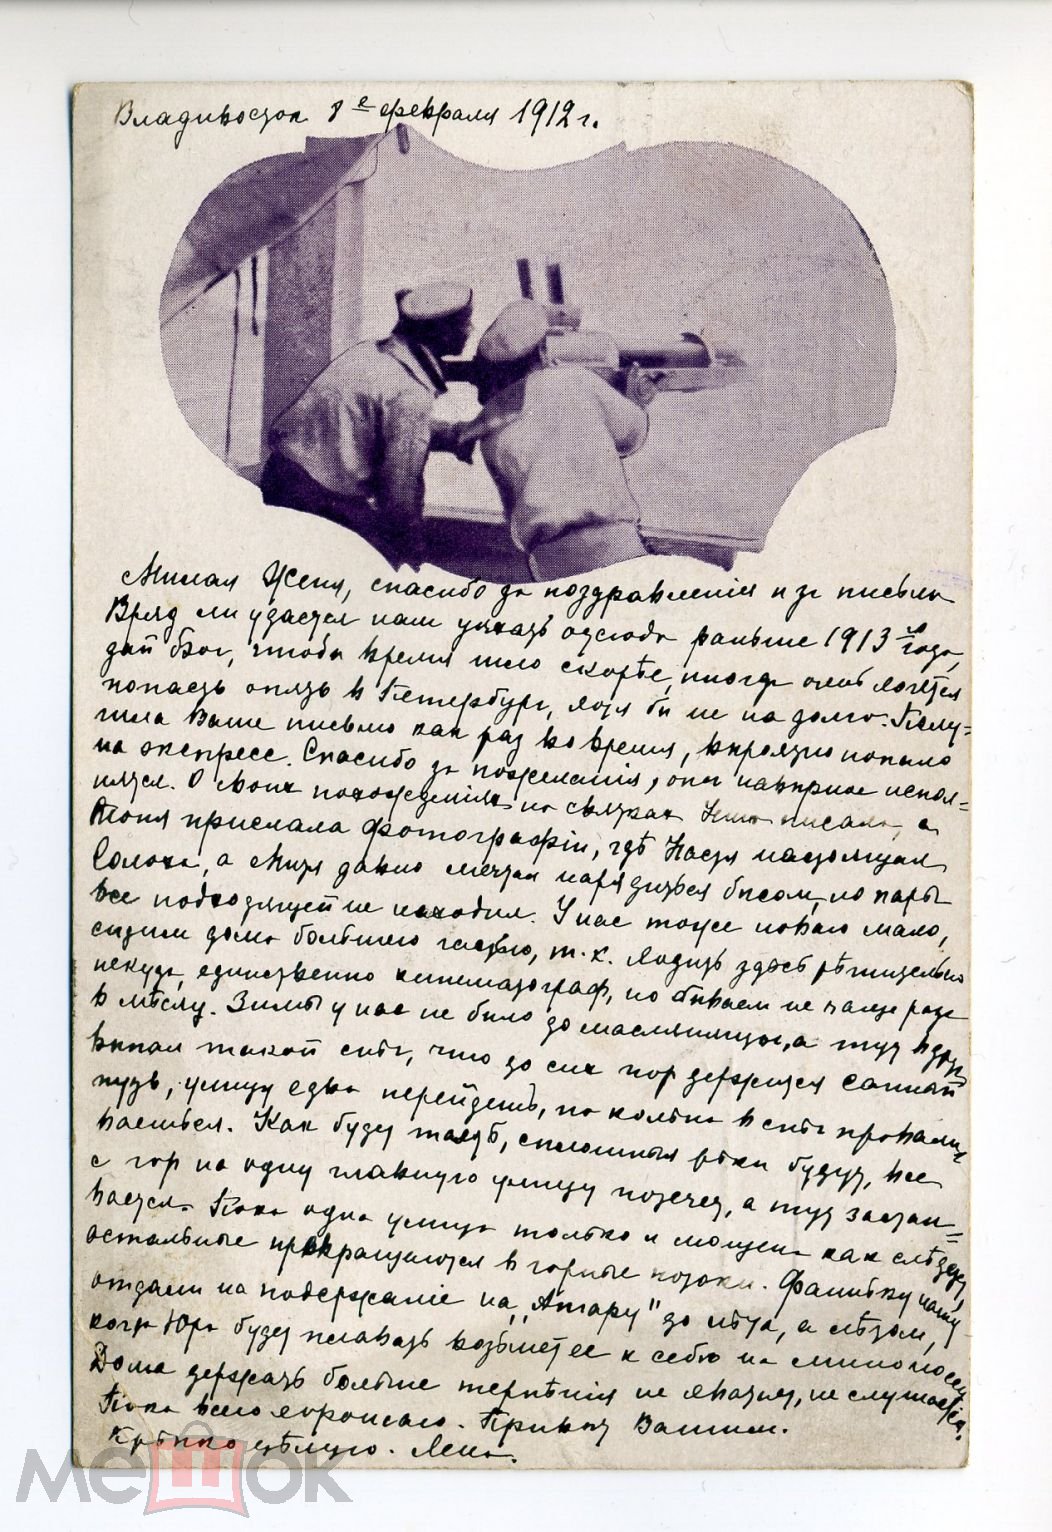 Владивосток 8е февраля 1912 г.
Милая Женя, спасибо за поздравленія и за письмо
Вряд ли удастся нам уехать отсюда раньше 1913го года,
дай Бог, чтобы время шло скорѣе, иногда очень хочется
попасть опять в Петербург, хотя бы не на долго. Полу-
чила Ваше письмо как раз во время, вѣроятно попало
на экспресс. Спасибо за пожеланія, они навѣрное испол-
нятся. О своих похожденіях на святках писала, а
Тоня прислала фотографіи, гдѣ Настя настоящая
Солоха, а Митя давно мечтал нарядиться бѣсом, но пары
все подходящей не находил. У нас тоже новаго мало,
сидим дома большею частью, т. к. ходить здѣсь рѣшительно
некуда, единственно кинематограф, но бываем не чаще раза
в мѣсяц. Зимы у нас не было до масляницы, а тут вдруг
выпал такой снѣг, что до сих пор держится санный
путь, улицу едва перейдешь, по колѣна в снѣг провали-
ваешься. Как будет таять, сплошныя рѣки будут, все
с гор на одну главную улицу потечет, а тут застаи-
вается. Пока одна улица только и мощена как слѣдует,
остальные превращаются в горные потоки. Фаньку нашу
отдали на подержаніе на "Ангару" до лѣта, а лѣтом,
когда Юра будет плавать возьмет ее к себѣ на миноносец
Дома держать больше терпѣнія не хватит, не слушается.
Пока всего хорошаго. Привѣт Вашим.
Крѣпко цѣлую. Лена.
мешок